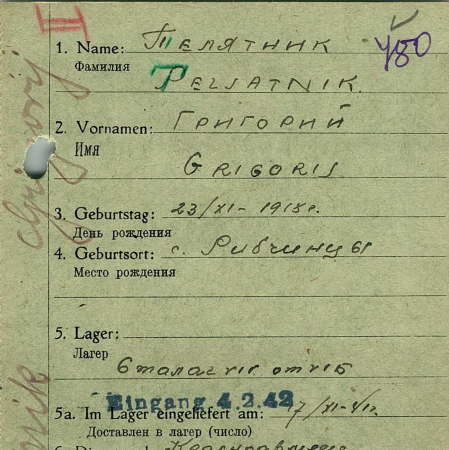 II
1. Name: Телятник 480
Фамилия
TELJATNIK.
2. Vornamen: ГРИГОРИЙ
Имя
GRIGORIJ
3. Geburtstag: 23/XI - 1918 г.
День рождения
4. Geburtsort: с. Рибчинцы
Место рождения
5. Lager:
Лагер
Сталаг VII
Eingang 4.2.42
5a. Im Lager eingeliefert am: 17/XI-41г.
Доставлен в лагер (число)
Grigorij